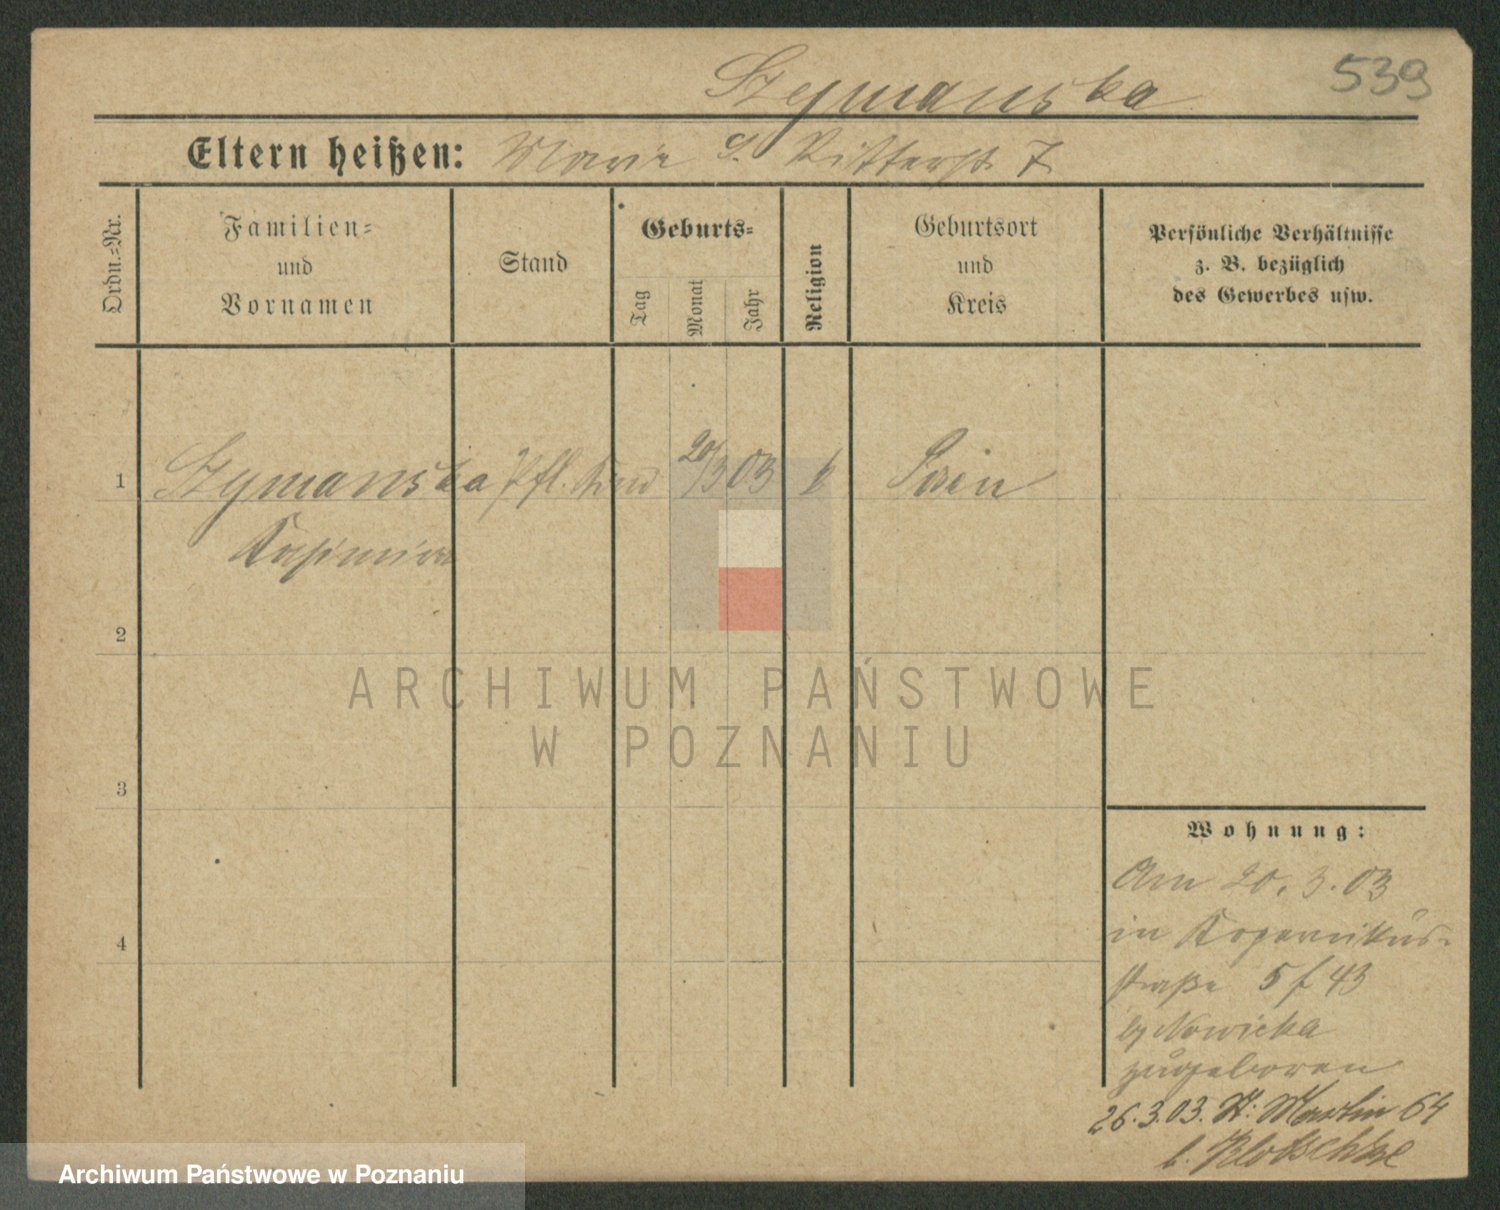 Szymanska
539
Eltern heißen: Marie S. Ritterstr. 7
Ordn.-Nr.
Familien-
und
Vornamen
Stand
Geburts-
Tag
Monat
Jahr
Religion
Geburtsort
und
Kreis
Persönliche Verhältnisse
z. B. bezüglich
des Gewerbes usw.
1 Szymanska Pfl. Kind 20/3 03 k
Kasimira
2
3
4
ARCHIWUM PAŃSTWOWE
W POZNANIU
Wohnung:
Am 20.3.03
in Kopernikus-
straße 5 f 43
by Nowicka
zugeboren
26.3.03. St. Martin 64
b. Klotschke
Archiwum Państwowe w Poznaniu